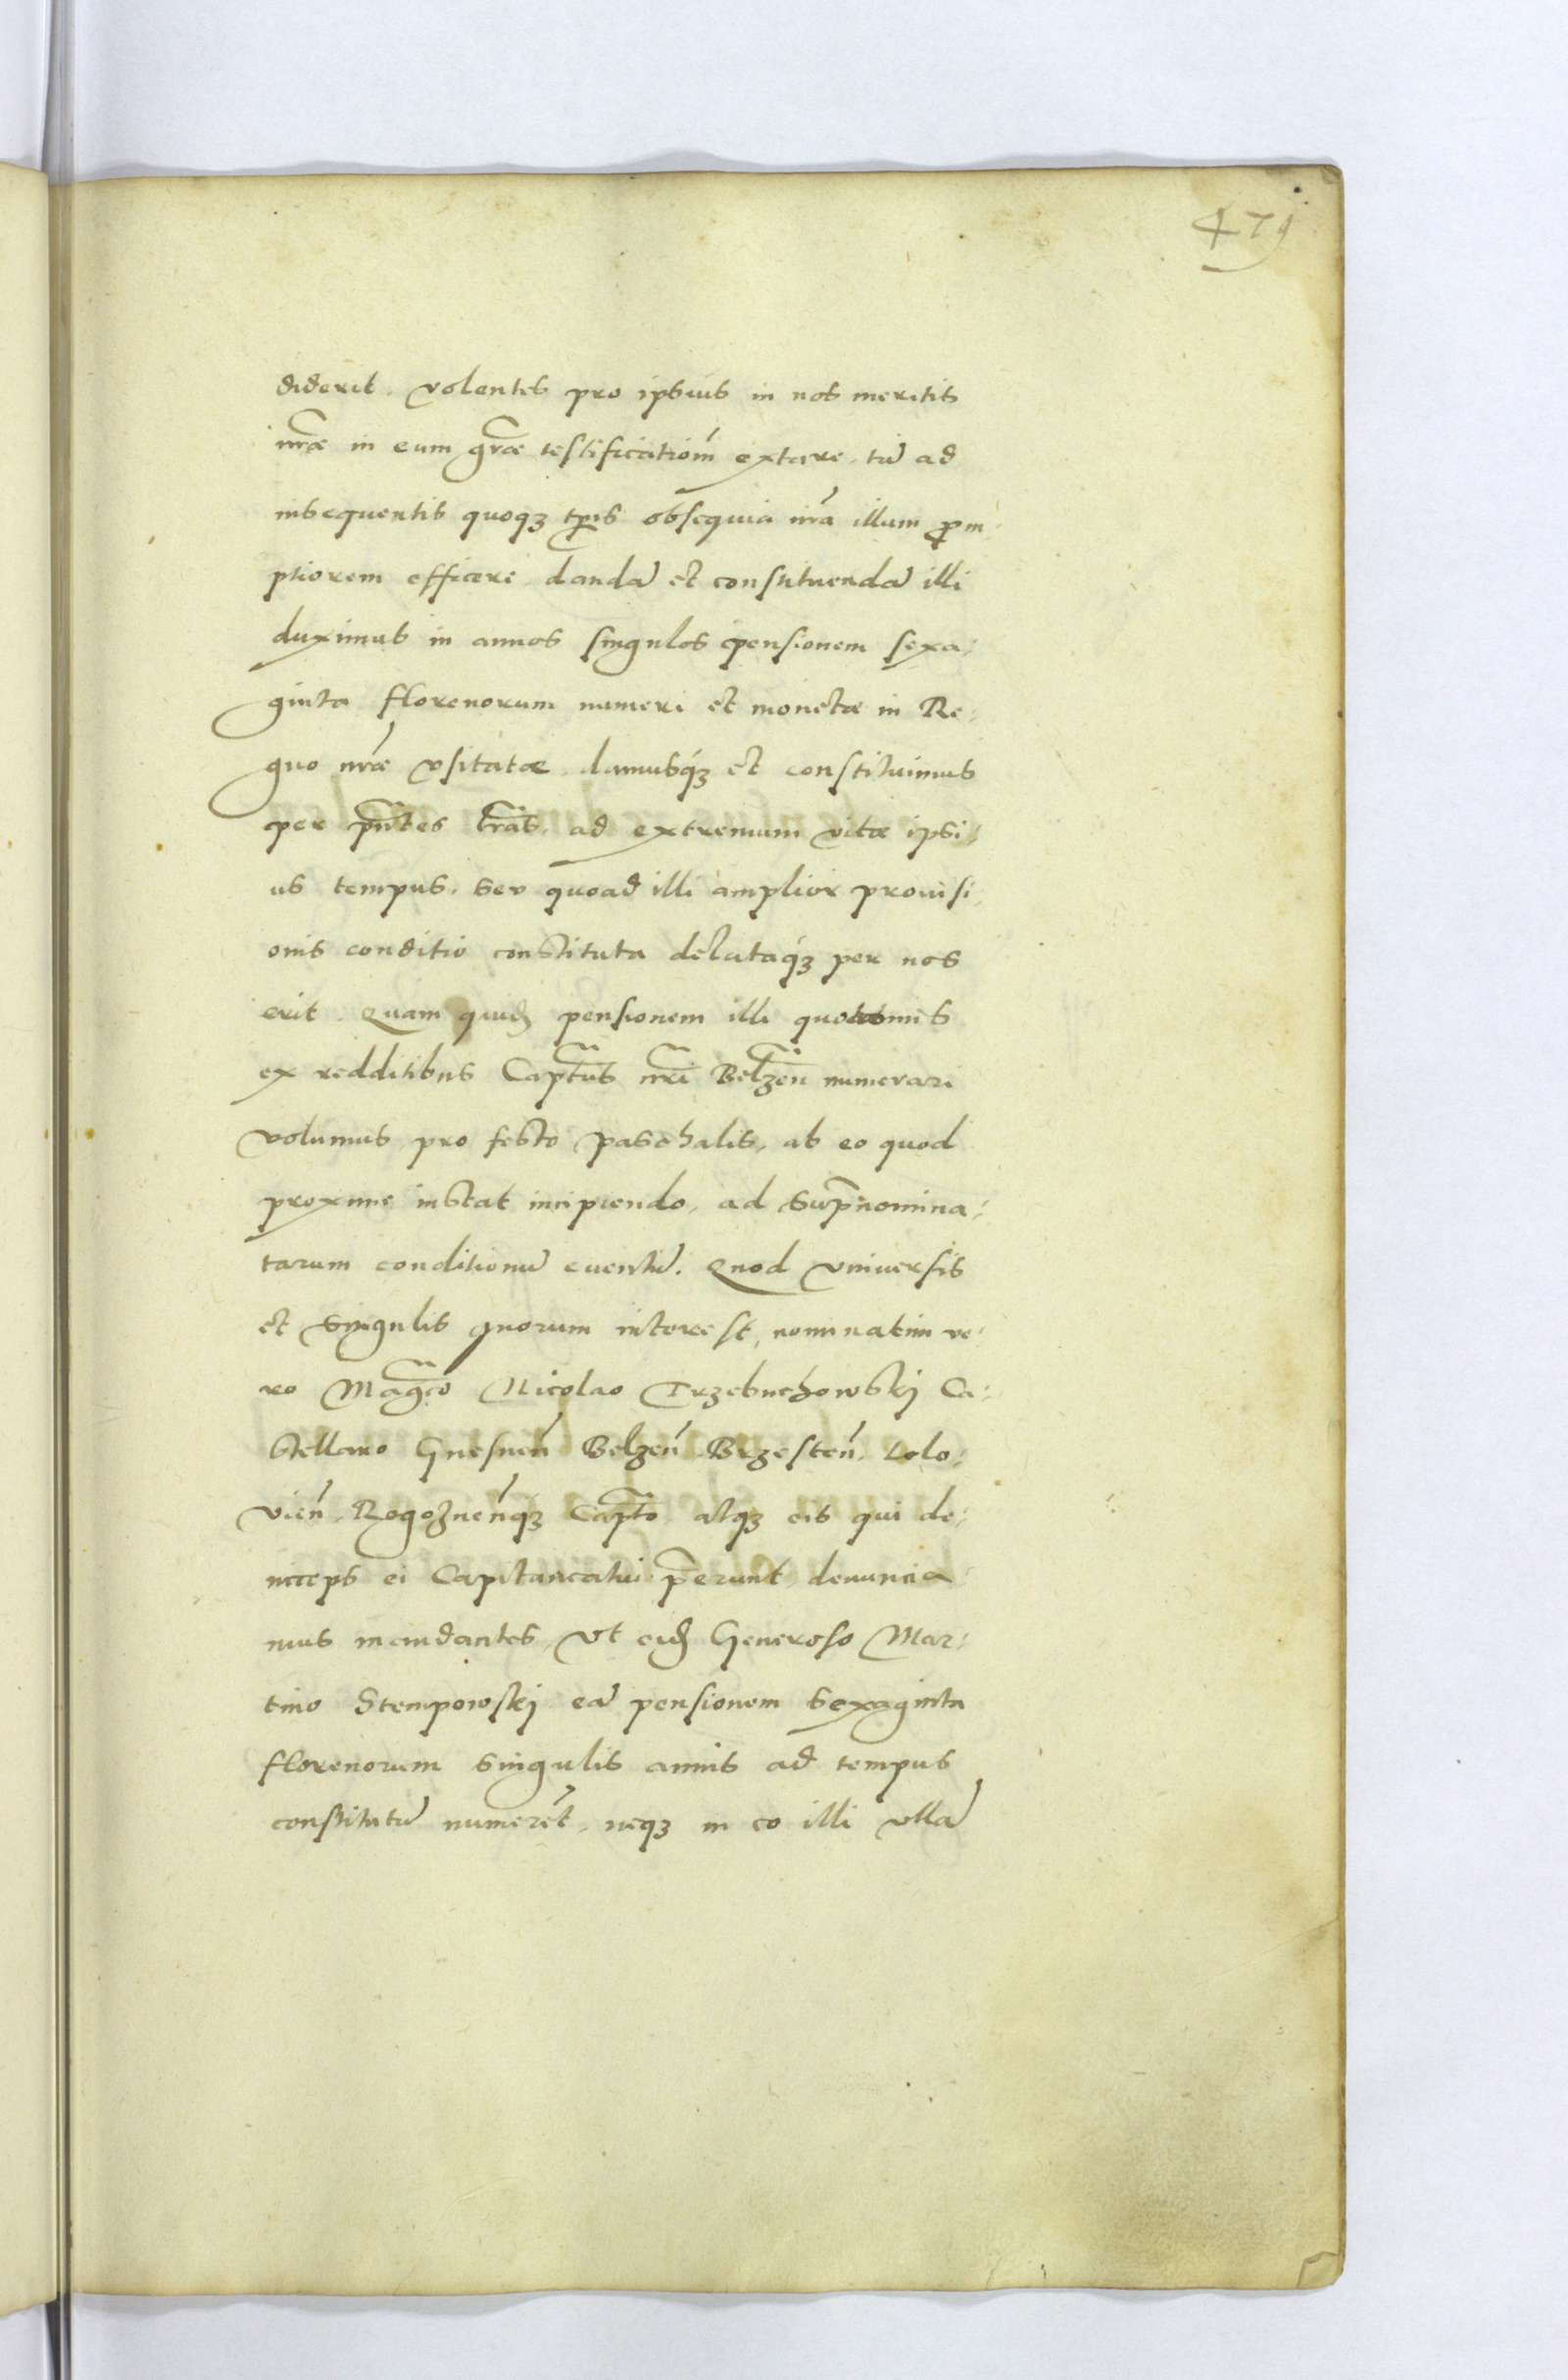 479
diderit. Volentes pro ipsius in nos meritis
nr̃ae in eum gr̃ae testificatiom̃ extare, tũ ad
insequentis quoqꝫ tp̃ris obsequia nr̃a illum ꝓm-
ptiorem efficere, dandã et constituendã illi
duximus in annos singulos pensionem sexa-
ginta florenorum numeri et monetae in Re-
gno nr̃o usitatae, damusqꝫ et constituimus
per pñtes lr̃as, ad extremum vitae ipsi-
us tempus, seu quoad illi amplior provisi-
onis conditio constituta delataqꝫ per nos
erit. Quam quidẽ pensionem illi quotannis
ex redditibus Captus nr̃i Belzeñ numerari
volumus pro festo paschalis, ab eo quod
proxime instat incipiendo, ad supranomina-
tarum conditionũ eventũ. Quod universis
et singulis quorum interest, nominatim ve-
ro Magco Nicolao Trzebuchowskj Ca-
stellano Gnesneñ Belzeñ Brzesteñ, Colo-
vieñ, Rogozneñqꝫ Capto, atqꝫ eis qui de-
inceps ei Capitaneatui p̃erunt, denuncia-
mus mandantes, ut eidẽ Generoso Mar-
tino Stempowskj eã pensionem sexaginta
florenorum singulis annis ad tempus
constitutũ numerẽt, neqꝫ in eo illi ullã